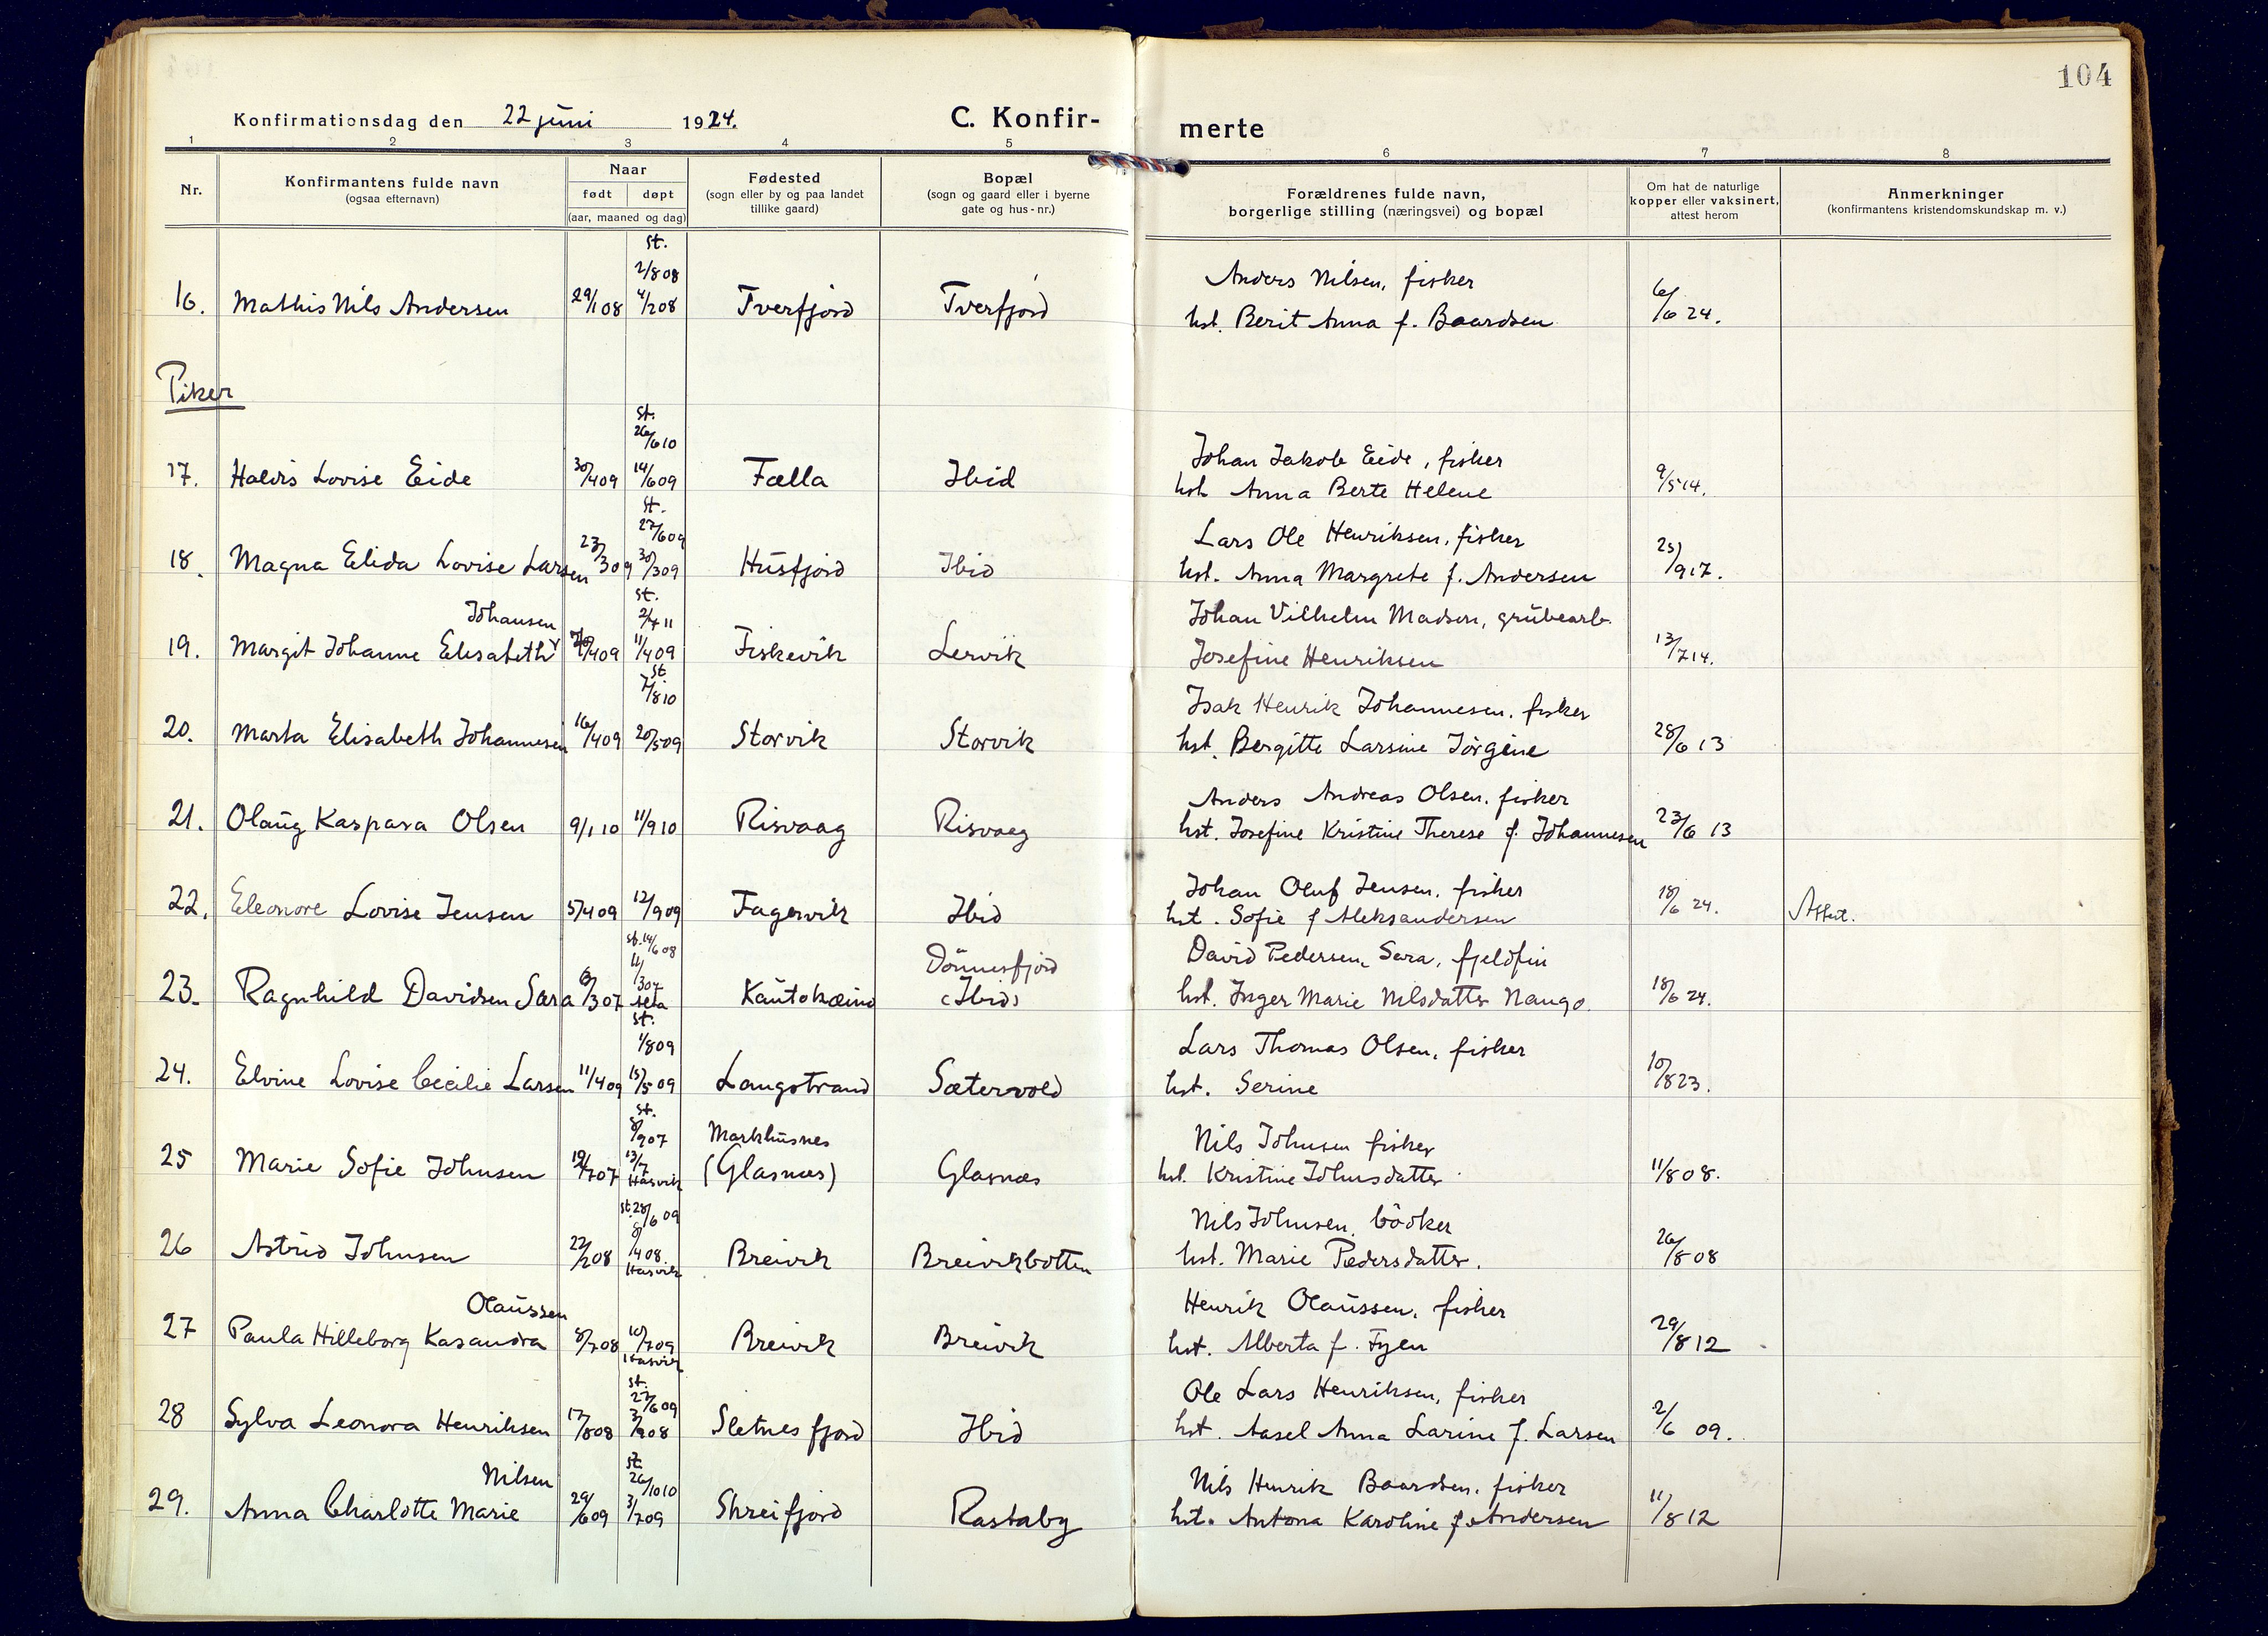 104
Konfirmationsdag den 22 juni 1924.
C. Konfir-
merte
1 2 3 4 5 6 7 8
Nr.
Konfirmantens fulde navn
(ogsaa efternavn)
Naar
født døpt
(aar, maaned og dag)
Fødested
(sogn eller by og paa landet
tillike gaard)
Bopæl
(sogn og gaard eller i byerne
gate og hus-nr.)
Forældrenes fulde navn,
borgerlige stilling (næringsvei) og bopæl
Om hat de naturlige
kopper eller vaksinert,
attest herom
Anmerkninger
(konfirmantens kristendomskundskap m. v.)
st.
2/8 08
Anders Nilsen, fisker
16. Mathis Nils Andersen 29/1 08 4/2 08 Tverfjord Tverfjord hst. Berit Anna f. Baardsen 6/6 24.
Piker
st.
26/6 10
Johan Jakob Eide, fisker
17. Haldis Lovise Eide 30/4 09 14/6 09 Fælla Ibid hst. Anna Berte Helene 9/5 14.
st.
27/6 09
Lars Ole Henriksen, fisker
18. Magna Elida Lovise Larsen 23/3 09 30/3 09 Husfjord Ibid hst. Anna Margrete f. Andersen 25/9 17.
st.
Johansen 2/4 11
Johan Vilhelm Madsen, grubearb.
19. Margit Johanne Elisabeth 4/4 09 11/4 09 Fiskevik Lervik Josefine Henriksen 13/7 14.
st
7/8 10
Isak Henrik Johannesen, fisker
20. Marta Elisabeth Johannesen 16/4 09 20/5 09 Storvik Storvik hst. Bergitte Larsine Jörgine 28/6 13
Anders Andreas Olsen, fisker
21. Olaug Kaspara Olsen 9/1 10 11/9 10 Risvaag Risvaag hst. Josefine Kristine Therese f. Johannesen 23/6 13
Johan Oluf Jensen, fisker
22. Eleonore Lovise Jensen 5/4 09 12/9 09 Fagervik Ibid hst. Sofie f Aleksandersen 18/6 24. Attest.
st. 14/6 08
Dönnesfjord
David Pedersen Sara, fjeldfin
23. Ragnhild Davidsen Sara 6/3 07 11/3 07 Kautokæino (Ibid) hst. Inger Marie Nilsdatter Nango. 18/6 24.
st.
1/8 09
Lars Thomas Olsen, fisker
24. Elvine Lovise Cecilie Larsen 11/4 09 15/5 09 Langstrand Sætervold hst. Serine 10/8 23.
st.
8/9 07
Markhusnes
Nils Johnsen fisker
25 Marie Sofie Johnsen 19/7 07 13/7 Hasvik (Glasnæs) Glasnæs hst. Kristine Johnsdatter 11/8 08.
st. 28/6 09
Nils Johnsen, bödker
26 Astrid Johnsen 22/2 08 8/4 08 Hasvik Breivik Breivikbotten hst. Marie Pedersdatter. 26/8 08
Olaussen
Henrik Olaussen, fisker
27 Paula Hilleborg Kasandra 8/7 08 10/7 09 Hasvik Breivik Breivik hst. Alberta f. Fyen 29/8 12
st.
27/6 09
Ole Lars Henriksen, fisker
28 Sylva Leonora Henriksen 17/8 08 3/9 08 Sletnesfjord Ibid hst. Aasel Anna Larine f. Larsen 2/6 09.
st.
Nilsen 26/10 10
Nils Henrik Baardsen, fisker
29. Anna Charlotte Marie 29/6 09 3/7 09 Skreifjord Rastaby hst. Antona Karoline f. Andersen 11/8 12